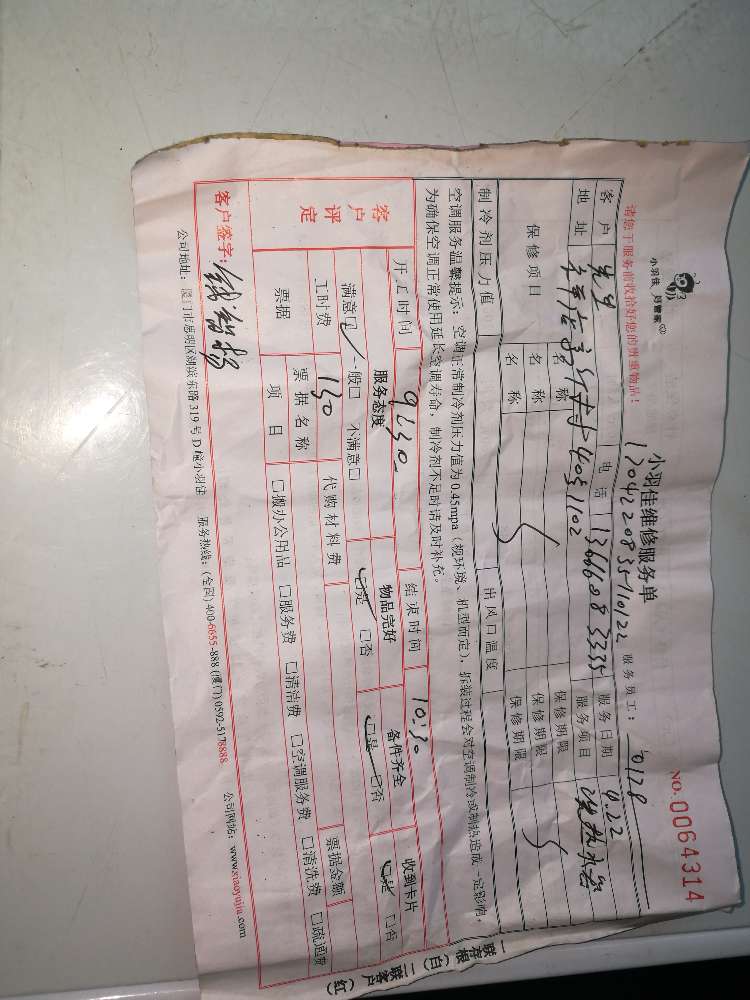 小羽佳 好管家
小羽佳维修服务单
NO. 0064314
请您于服务前收拾好您的贵重物品!
服务员工: 0128
客户 先生 电话 服务日期 9.22
地址 服务项目
保修项目 名称 保修期限
名称 保修期限
名称 保修期限
制冷剂压力值 出风口温度
空调服务温馨提示: 空调正常制冷剂压力值为0.45mpa(视环境、机型而定), 拆装过程会对空调制冷或制热造成一定影响,
为确保空调正常使用延长空调寿命, 制冷剂不足时请及时补充。
开工时间 9:30 结束时间 10:30
客户评定 服务态度 物品完好 备件齐全 收到卡片
满意□ 一般□ 不满意□ □是 □否 □是 □否 □是 □否
工时费 130 代购材料费
票据 票据名称 票据金额
项目 □搬办公用品 □服务费 □清洁费 □空调服务费 □清洗费 □疏通费
客户签字:
公司地址: 厦门市思明区湖滨东路319号D幢小羽佳 服务热线: (全国) 400-6655-888 (厦门) 0592-5178888 公司网站: www.xiaoyujia.com
一联存根(白) 二联客户(红)